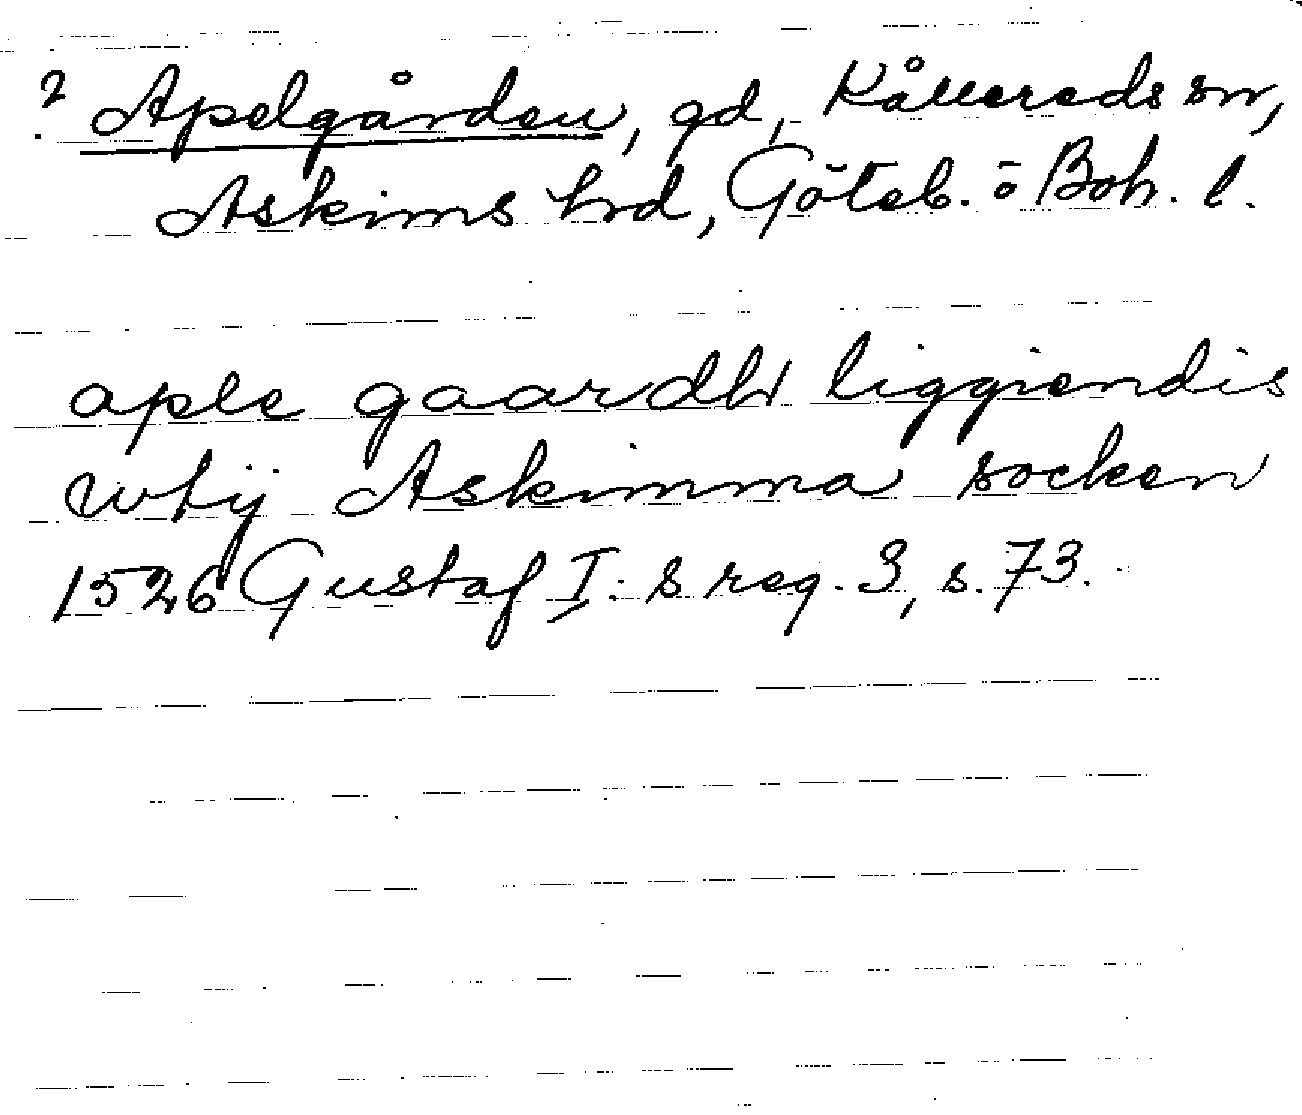 ? Apelgården, gd, Kållereds sn,
Askims hrd, Göteb. o Boh. l.
aple gaardh liggiendis
wtij Askimma socken
1526 Gustaf I:s reg. 3, s. 73.